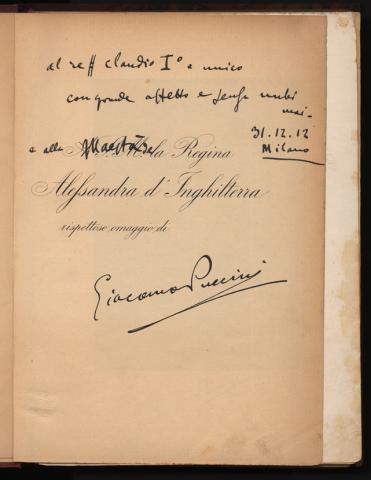 al re # Claudio I° e unico
con grande affetto e senza nubi
mai-
31.12.12
Milano
e alla Maestà
A S. M. la Regina
Alessandra d'Inghilterra
rispettoso omaggio di
Giacomo Puccini